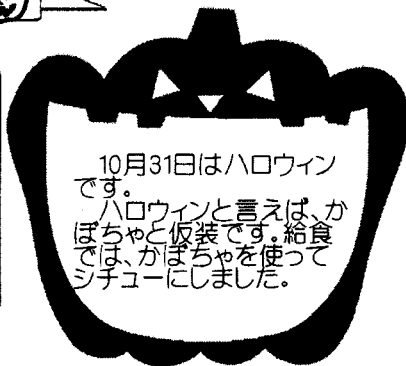 10月31日はハロウィン
です。
　ハロウィンと言えば、か
ぼちゃと仮装です。給食
では、かぼちゃを使って
シチューにしました。